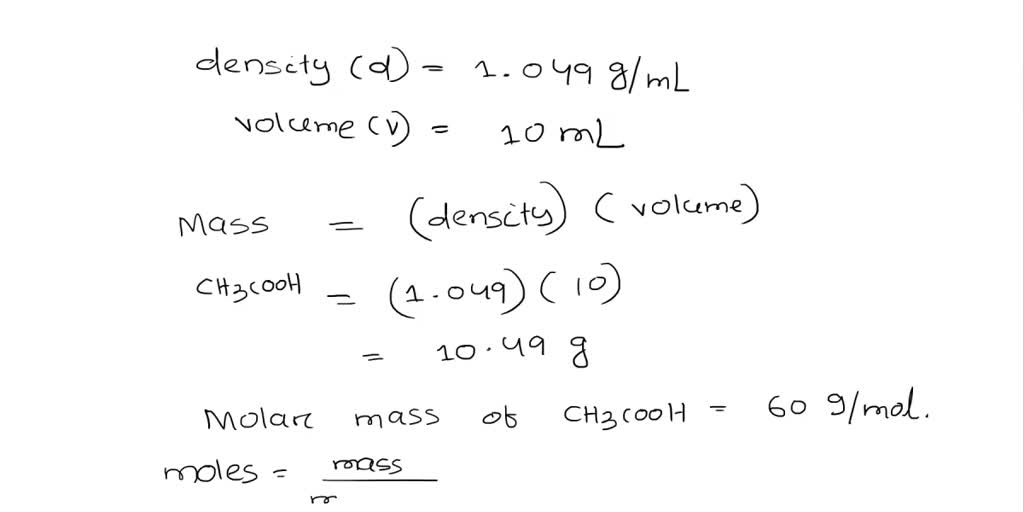 density (d) = 1.049 g/mL
volume (v) = 10 mL
Mass = (density) (volume)
CH3COOH = (1.049) (10)
= 10.49 g
Molar mass of CH3COOH = 60 g/mol.
moles = mass
m